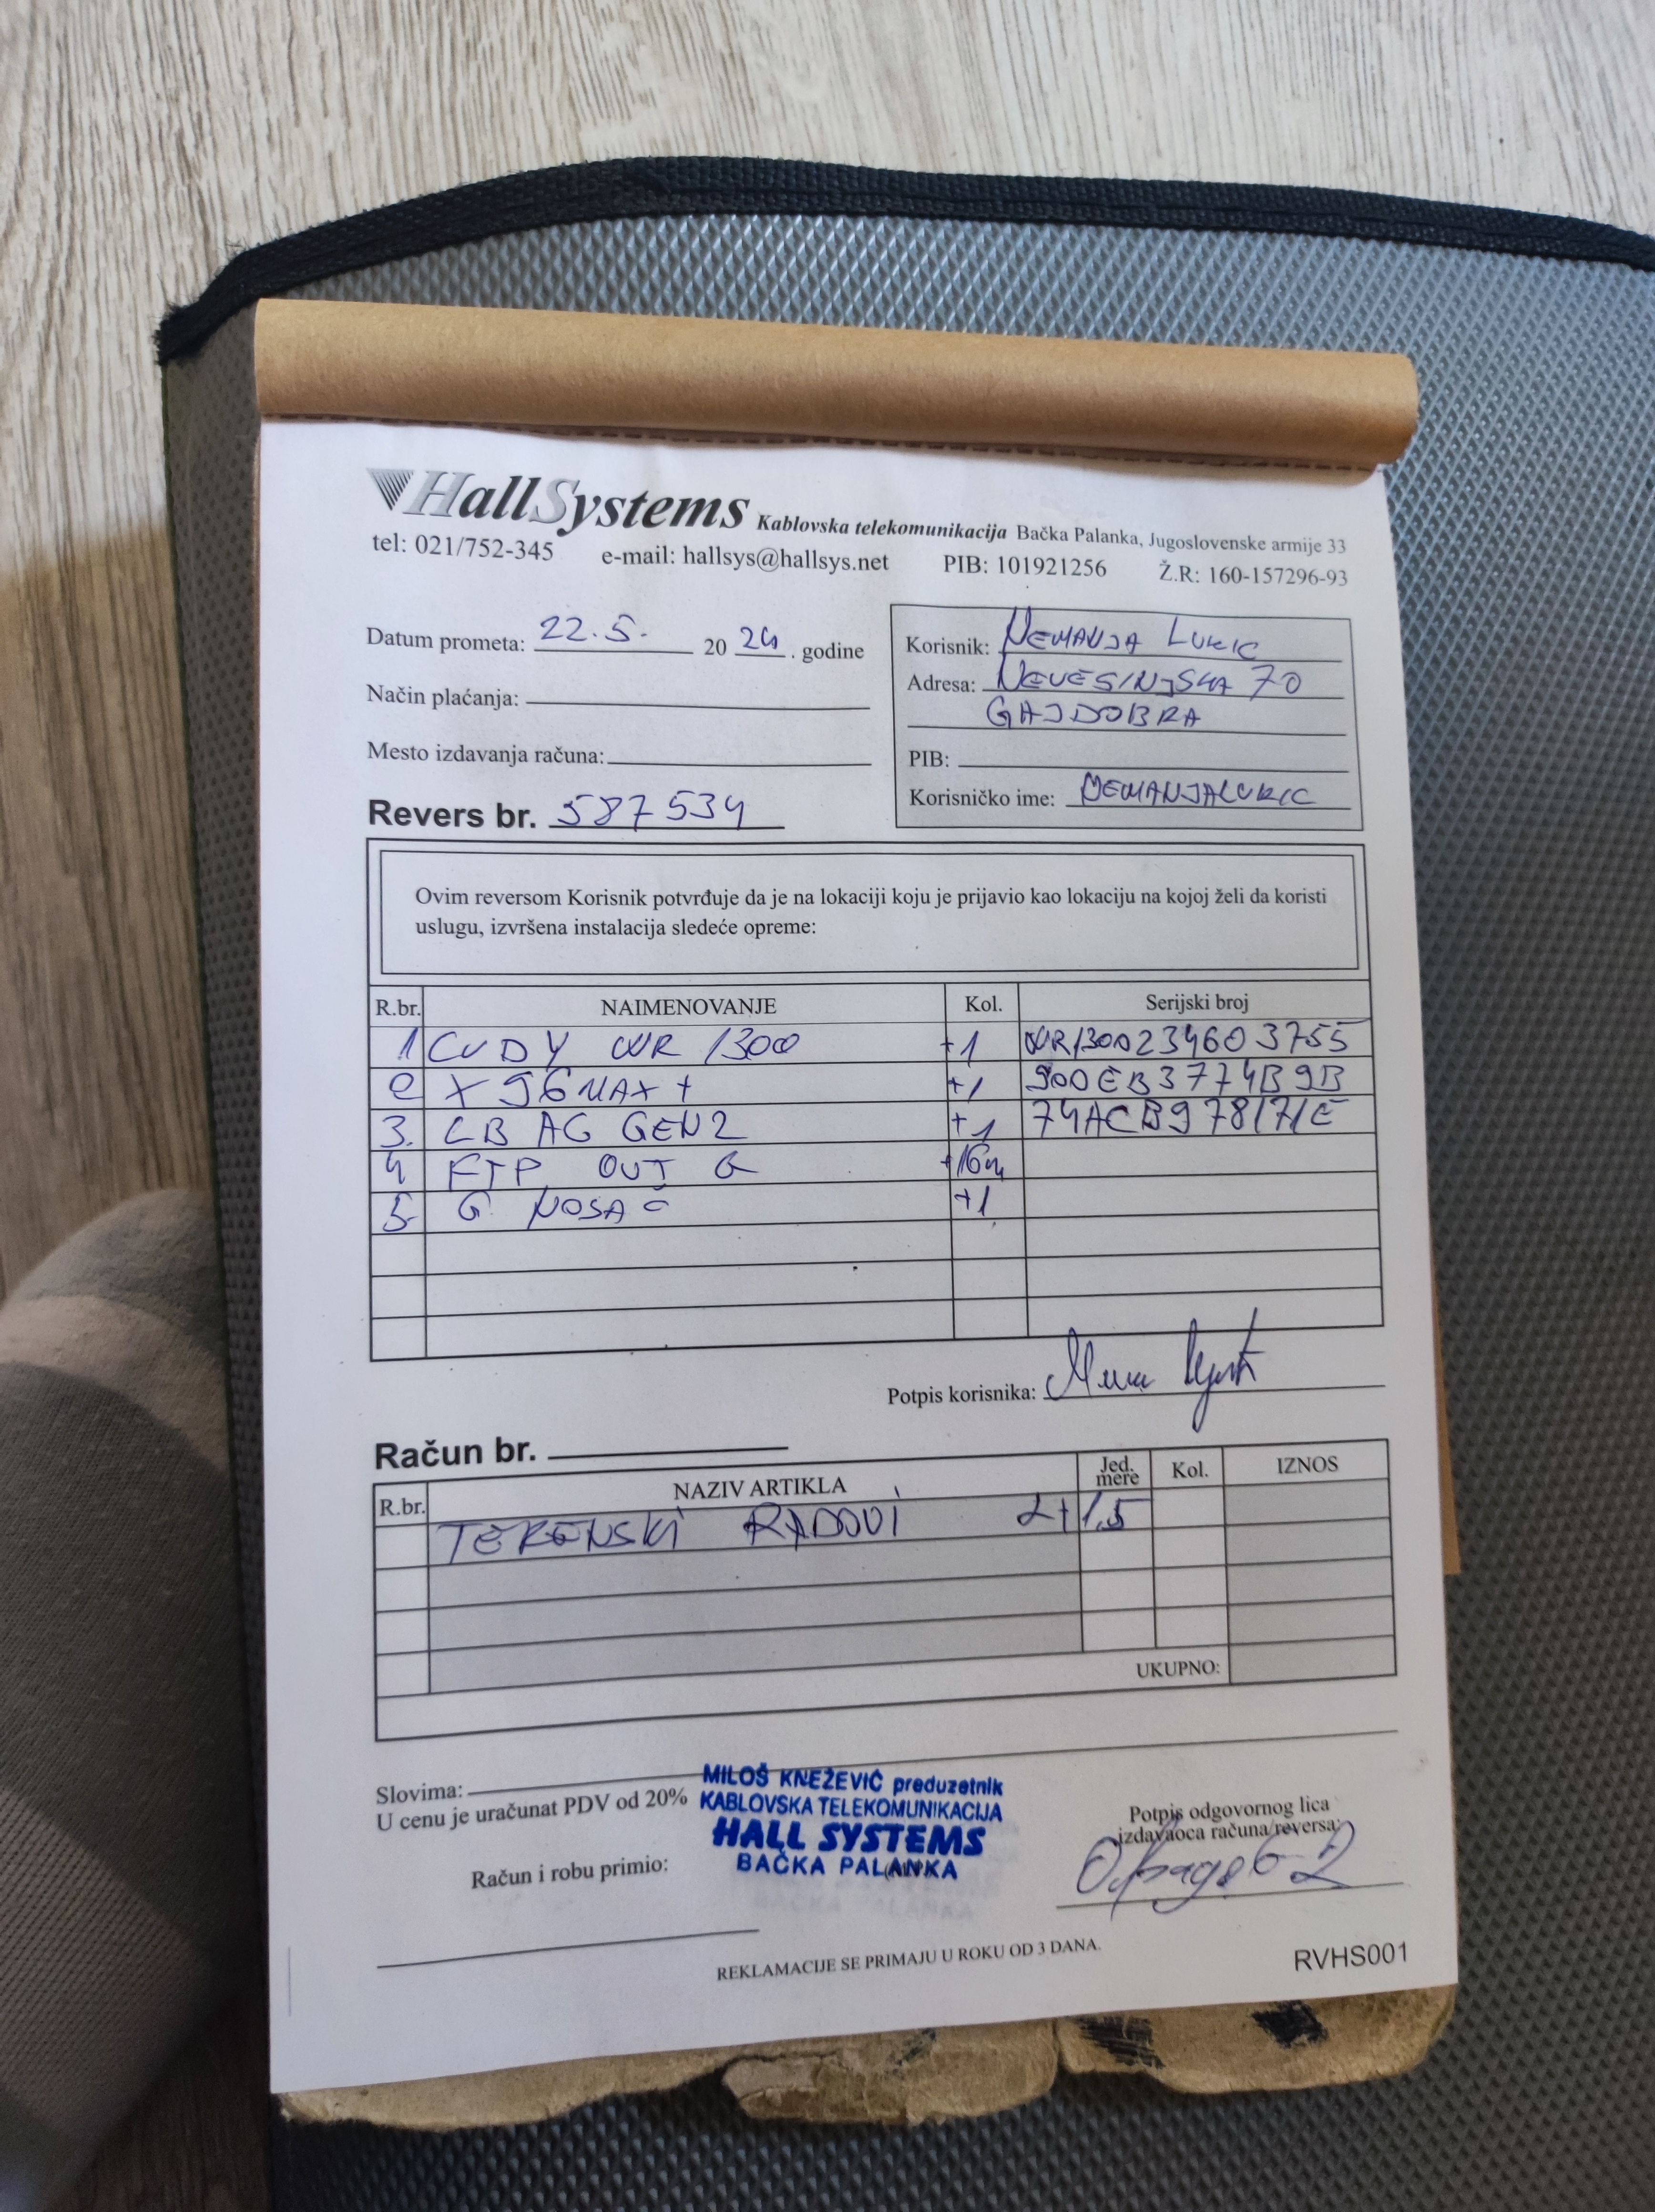 HallSystems Kablovska telekomunikacija Bačka Palanka, Jugoslovenske armije 33
tel: 021/752-345 e-mail: hallsys@hallsys.net PIB: 101921256 Ž.R: 160-157296-93
Datum prometa: 22.5. 20 24 . godine
Način plaćanja:
Mesto izdavanja računa:
Revers br. 587534
Korisnik: NEMANJA LUKIC
Adresa: NEVESINJSKA 70
GAJDOBRA
PIB:
Korisničko ime: NEMANJALUKIC
Ovim reversom Korisnik potvrđuje da je na lokaciji koju je prijavio kao lokaciju na kojoj želi da koristi
uslugu, izvršena instalacija sledeće opreme:
R.br. NAIMENOVANJE Kol. Serijski broj
1 CUDY WR 1300 +1 WR1300234603755
2 X96MAX+ +1 900EB3774B9B
3. LB AG GEN2 +1 74ACB978171E
4 FTP OUT G +16m
5. G NOSAČ +1
Potpis korisnika:
Račun br.
R.br. NAZIV ARTIKLA Jed. mere Kol. IZNOS
TERENSKI RADOVI 2+1.5
UKUPNO:
Slovima:
U cenu je uračunat PDV od 20%
MILOŠ KNEŽEVIĆ preduzetnik
KABLOVSKA TELEKOMUNIKACIJA
HALL SYSTEMS
BAČKA PALANKA
Potpis odgovornog lica
izdavaoca računa/reversa:
Račun i robu primio:
REKLAMACIJE SE PRIMAJU U ROKU OD 3 DANA.
RVHS001